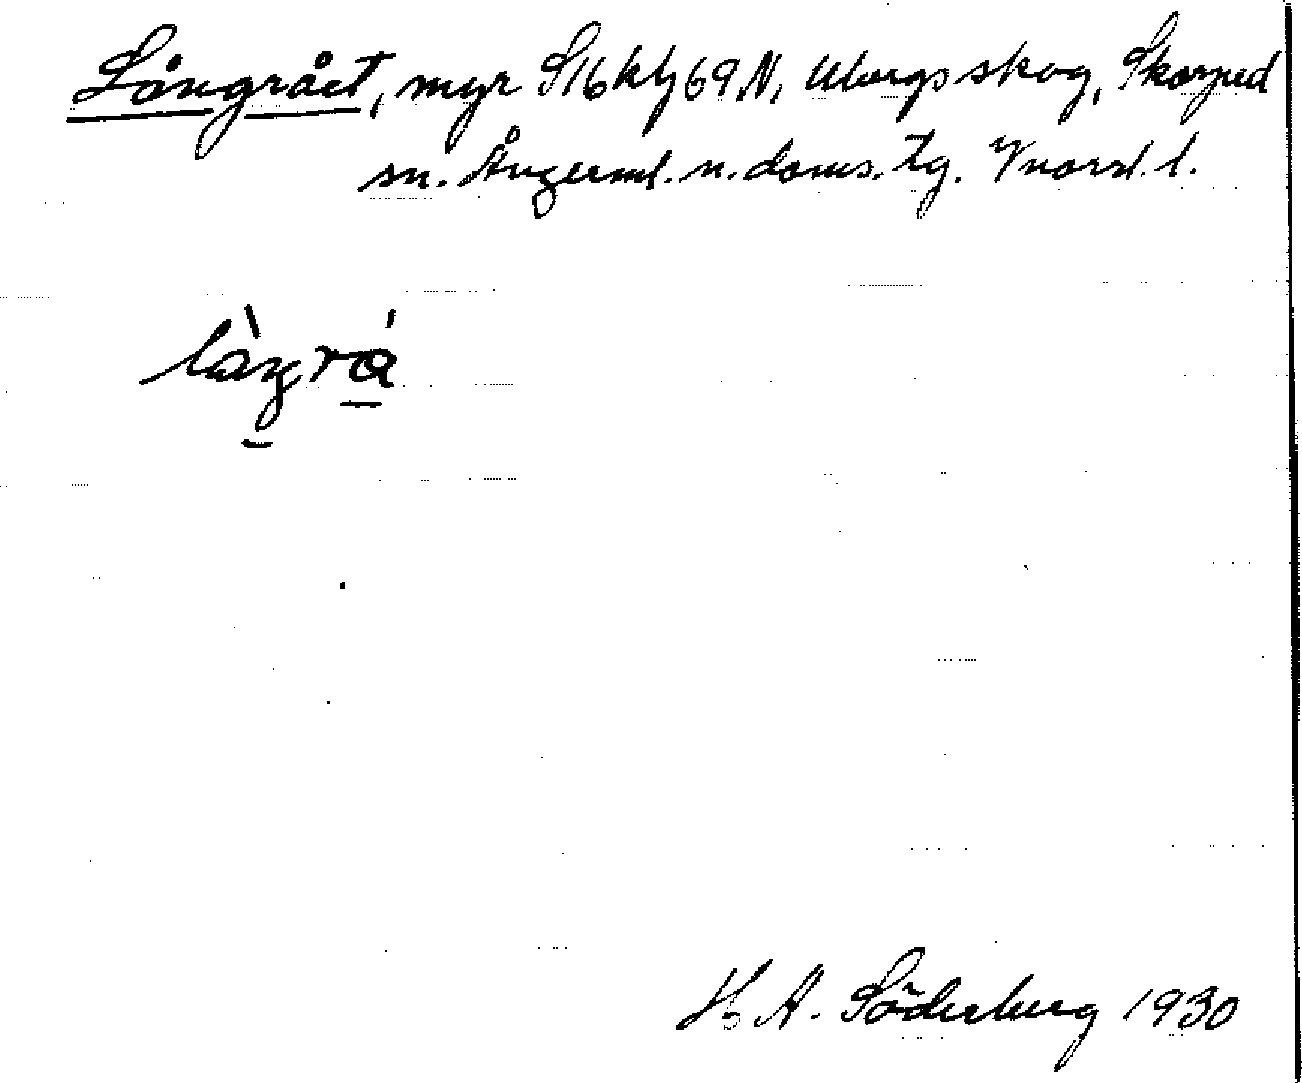 Långrået, myr S16kh69N, Ubergsskog, Skorped
sn. Ångerml. n. doms. tg. Vnorrl. l.
làŋrá
H. A. Söderberg 1930